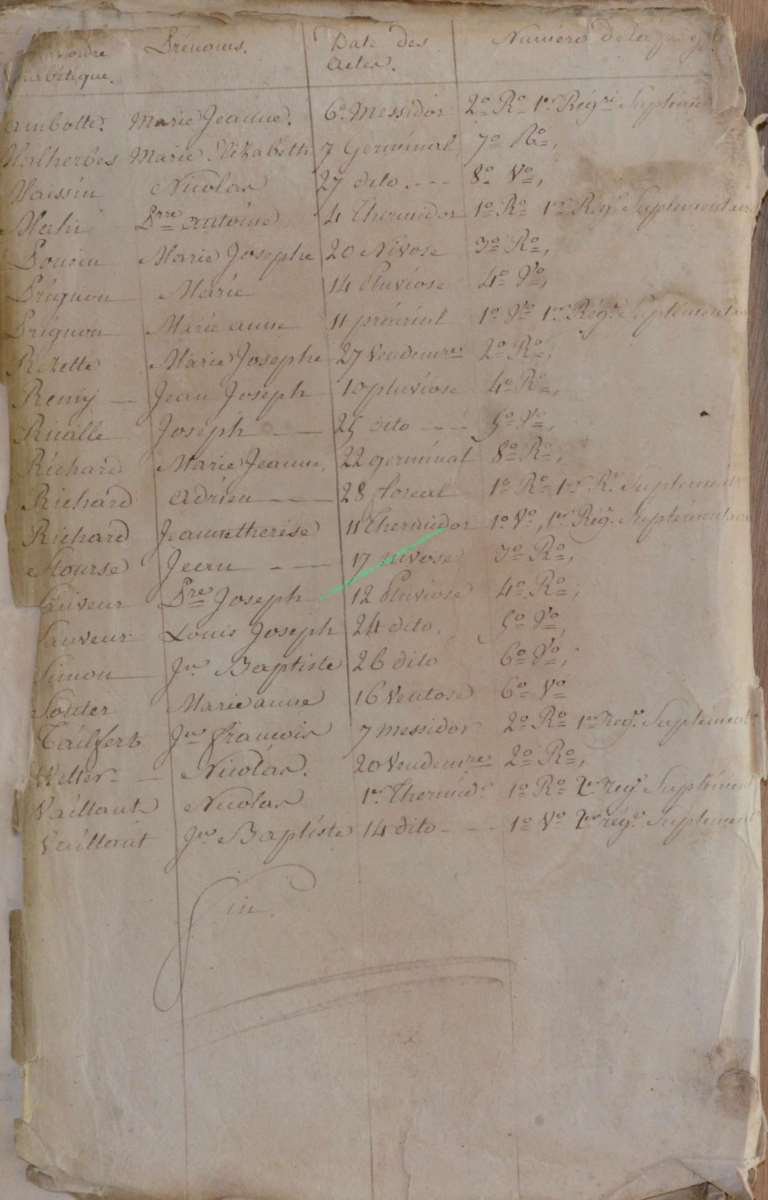 Prénoms. Date des Numéro de la page
abétique. Actes.
ambotte. Marie Jeanne. 6 Messidor 2º Rº 1er Régr Suplém
Malherbes Marie Elizabéth 7 Germinal 7º Rº,
Massin Nicolas 27 dito. -- 8º Vº,
Mahi Prre antoine 4 thermidor 1º Rº 1er Régr Suplémentaire
Pousin Marie Josephe 20 Nivose 3º Rº,
Prignon Marie 14 Pluviose 4º Vº,
Prignon Marie anne 11 prairial 1º Vº 1er Régr Suplémentair
Rezette Marie Josephe 27 Vendemre 2º Rº,
Remy — Jean Joseph 10 pluviose 4º Rº,
Rualle Joséph — 25 dito — 5º Vº,
Richard Marie Jeanne, 22 germinal 8º Rº,
Richard adrien — 28 floreal 1º Rº 1er Rr Suplément
Richard Jeannetherése 11 thermidor 1º Vº, 1er Régr Suplémentair
Jean — 17 nivose 3º Rº,
Prre Joseph 12 Pluviose 4º Rº,
Sauveur Louis Joseph 24 dito. 5º Vº,
Simon Jn Baptiste 26 dito 6º Vº,
Marie anne 16 Ventose 6º Vº
Tailfert Jn francois 7 messidor 2º Rº 1er regr Suplément
Welter — Nicolas. 20 Vendemre 2º Rº,
Vaillant Nicolas 1er thermidr 1º Rº 2me regr Suplément
Vaillant Jn Baptiste 14 dito - - 1º Vº 2me régr Suplément
Fin.